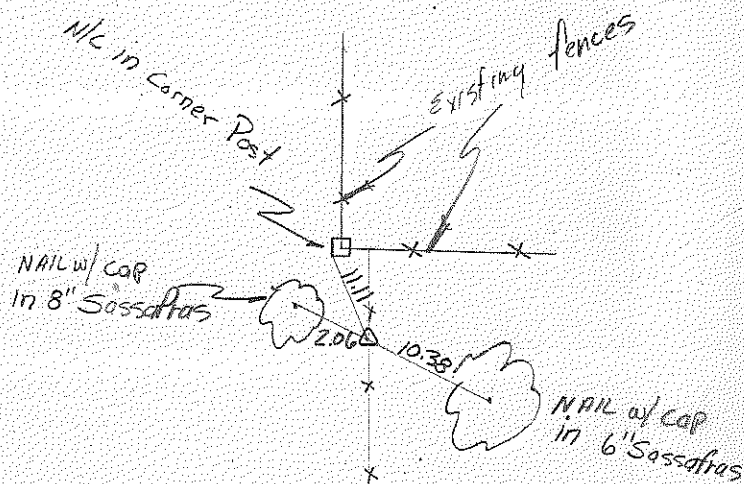 N/C in Corner Post
Existing fences
NAIL w/ cap
in 8" Sassafras
11.11
2.06
10.38
NAIL w/ cap
in 6" Sassafras